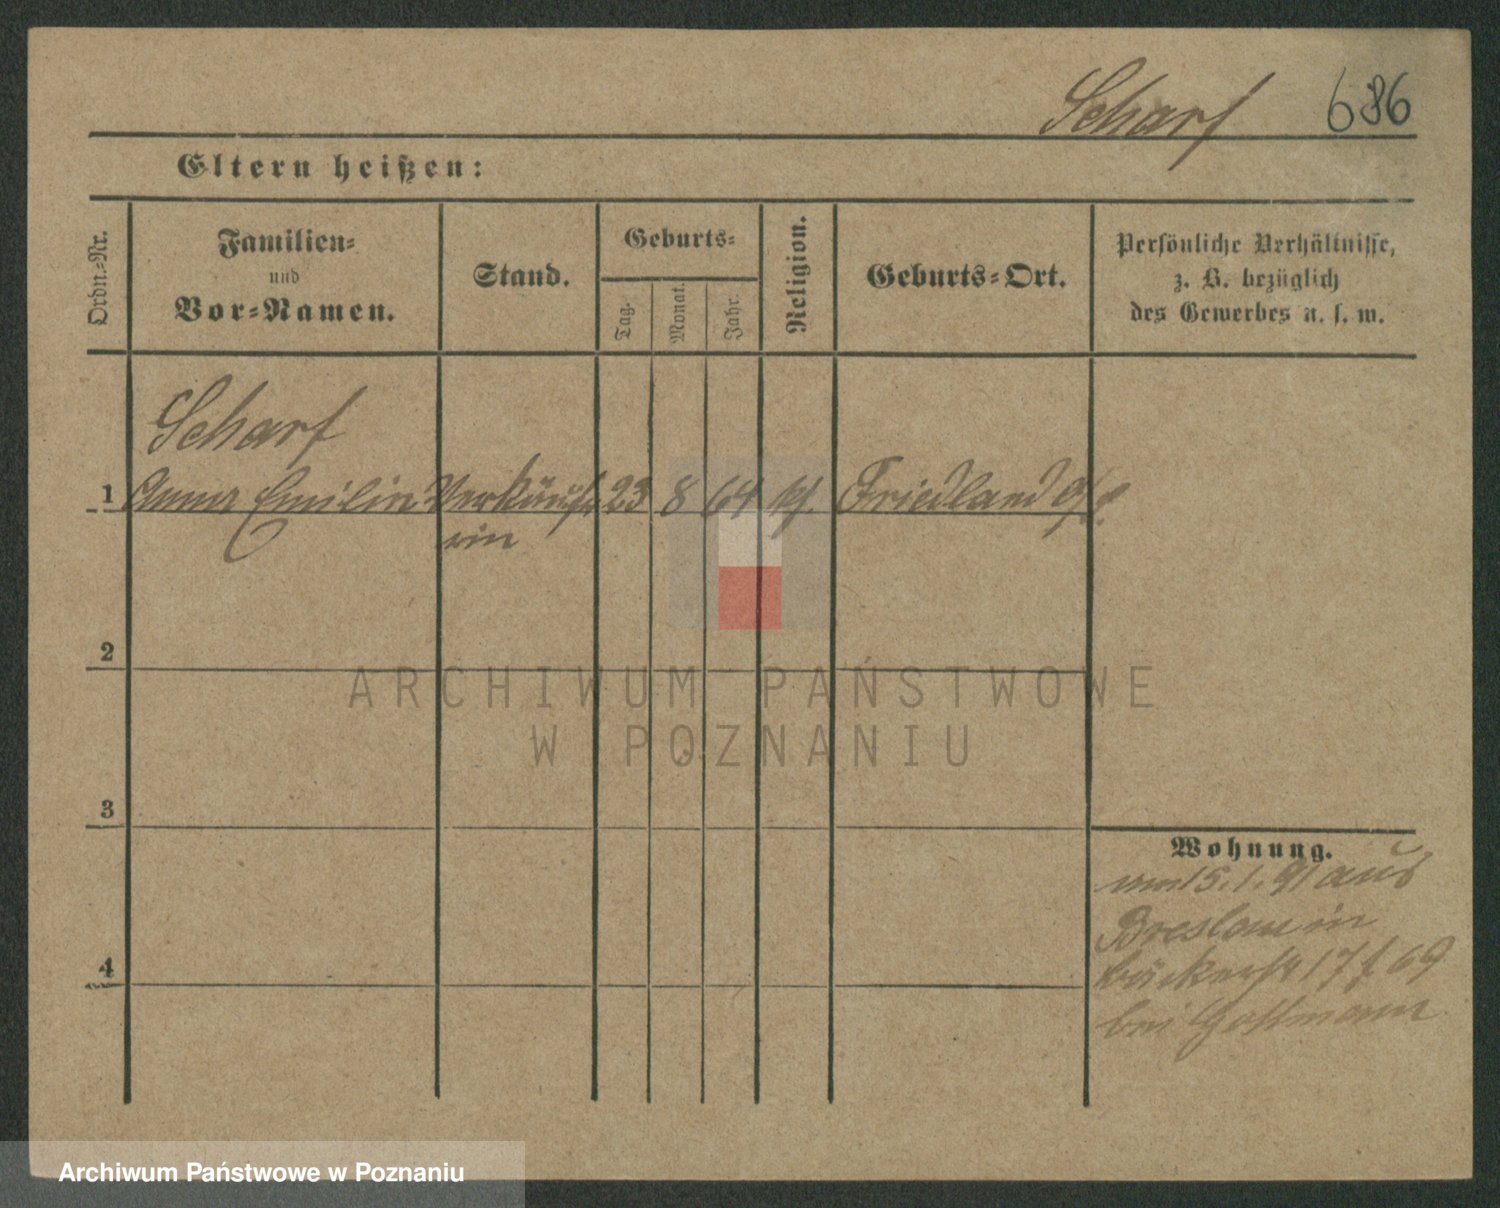 Scharf 686
Eltern heißen:
Ordn.-Nr.
Familien-
und
Vor-Namen.
Stand.
Geburts-
Tag.
Monat.
Jahr.
Religion.
Geburts-Ort.
Persönliche Verhältnisse,
z. B. bezüglich
des Gewerbes u. s. w.
Scharf
1 Anna Emilie Verkäufe 23 8 64 Friedland
rin
2
ARCHIWUM PAŃSTWOWE
W POZNANIU
3
Wohnung.
15.1.91 aus
Breslau in
17 69
bei
4
Archiwum Państwowe w Poznaniu